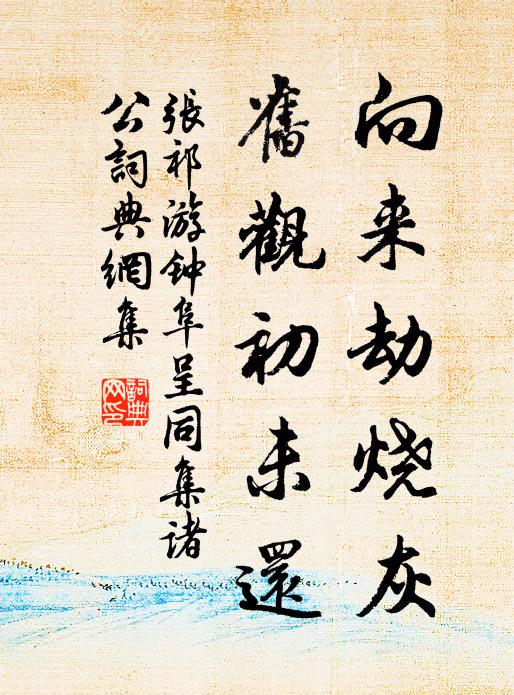 向来劫烧灰
舊觀初未還
張祁游钟阜呈同集诸
公詞典網集
詞典
网印